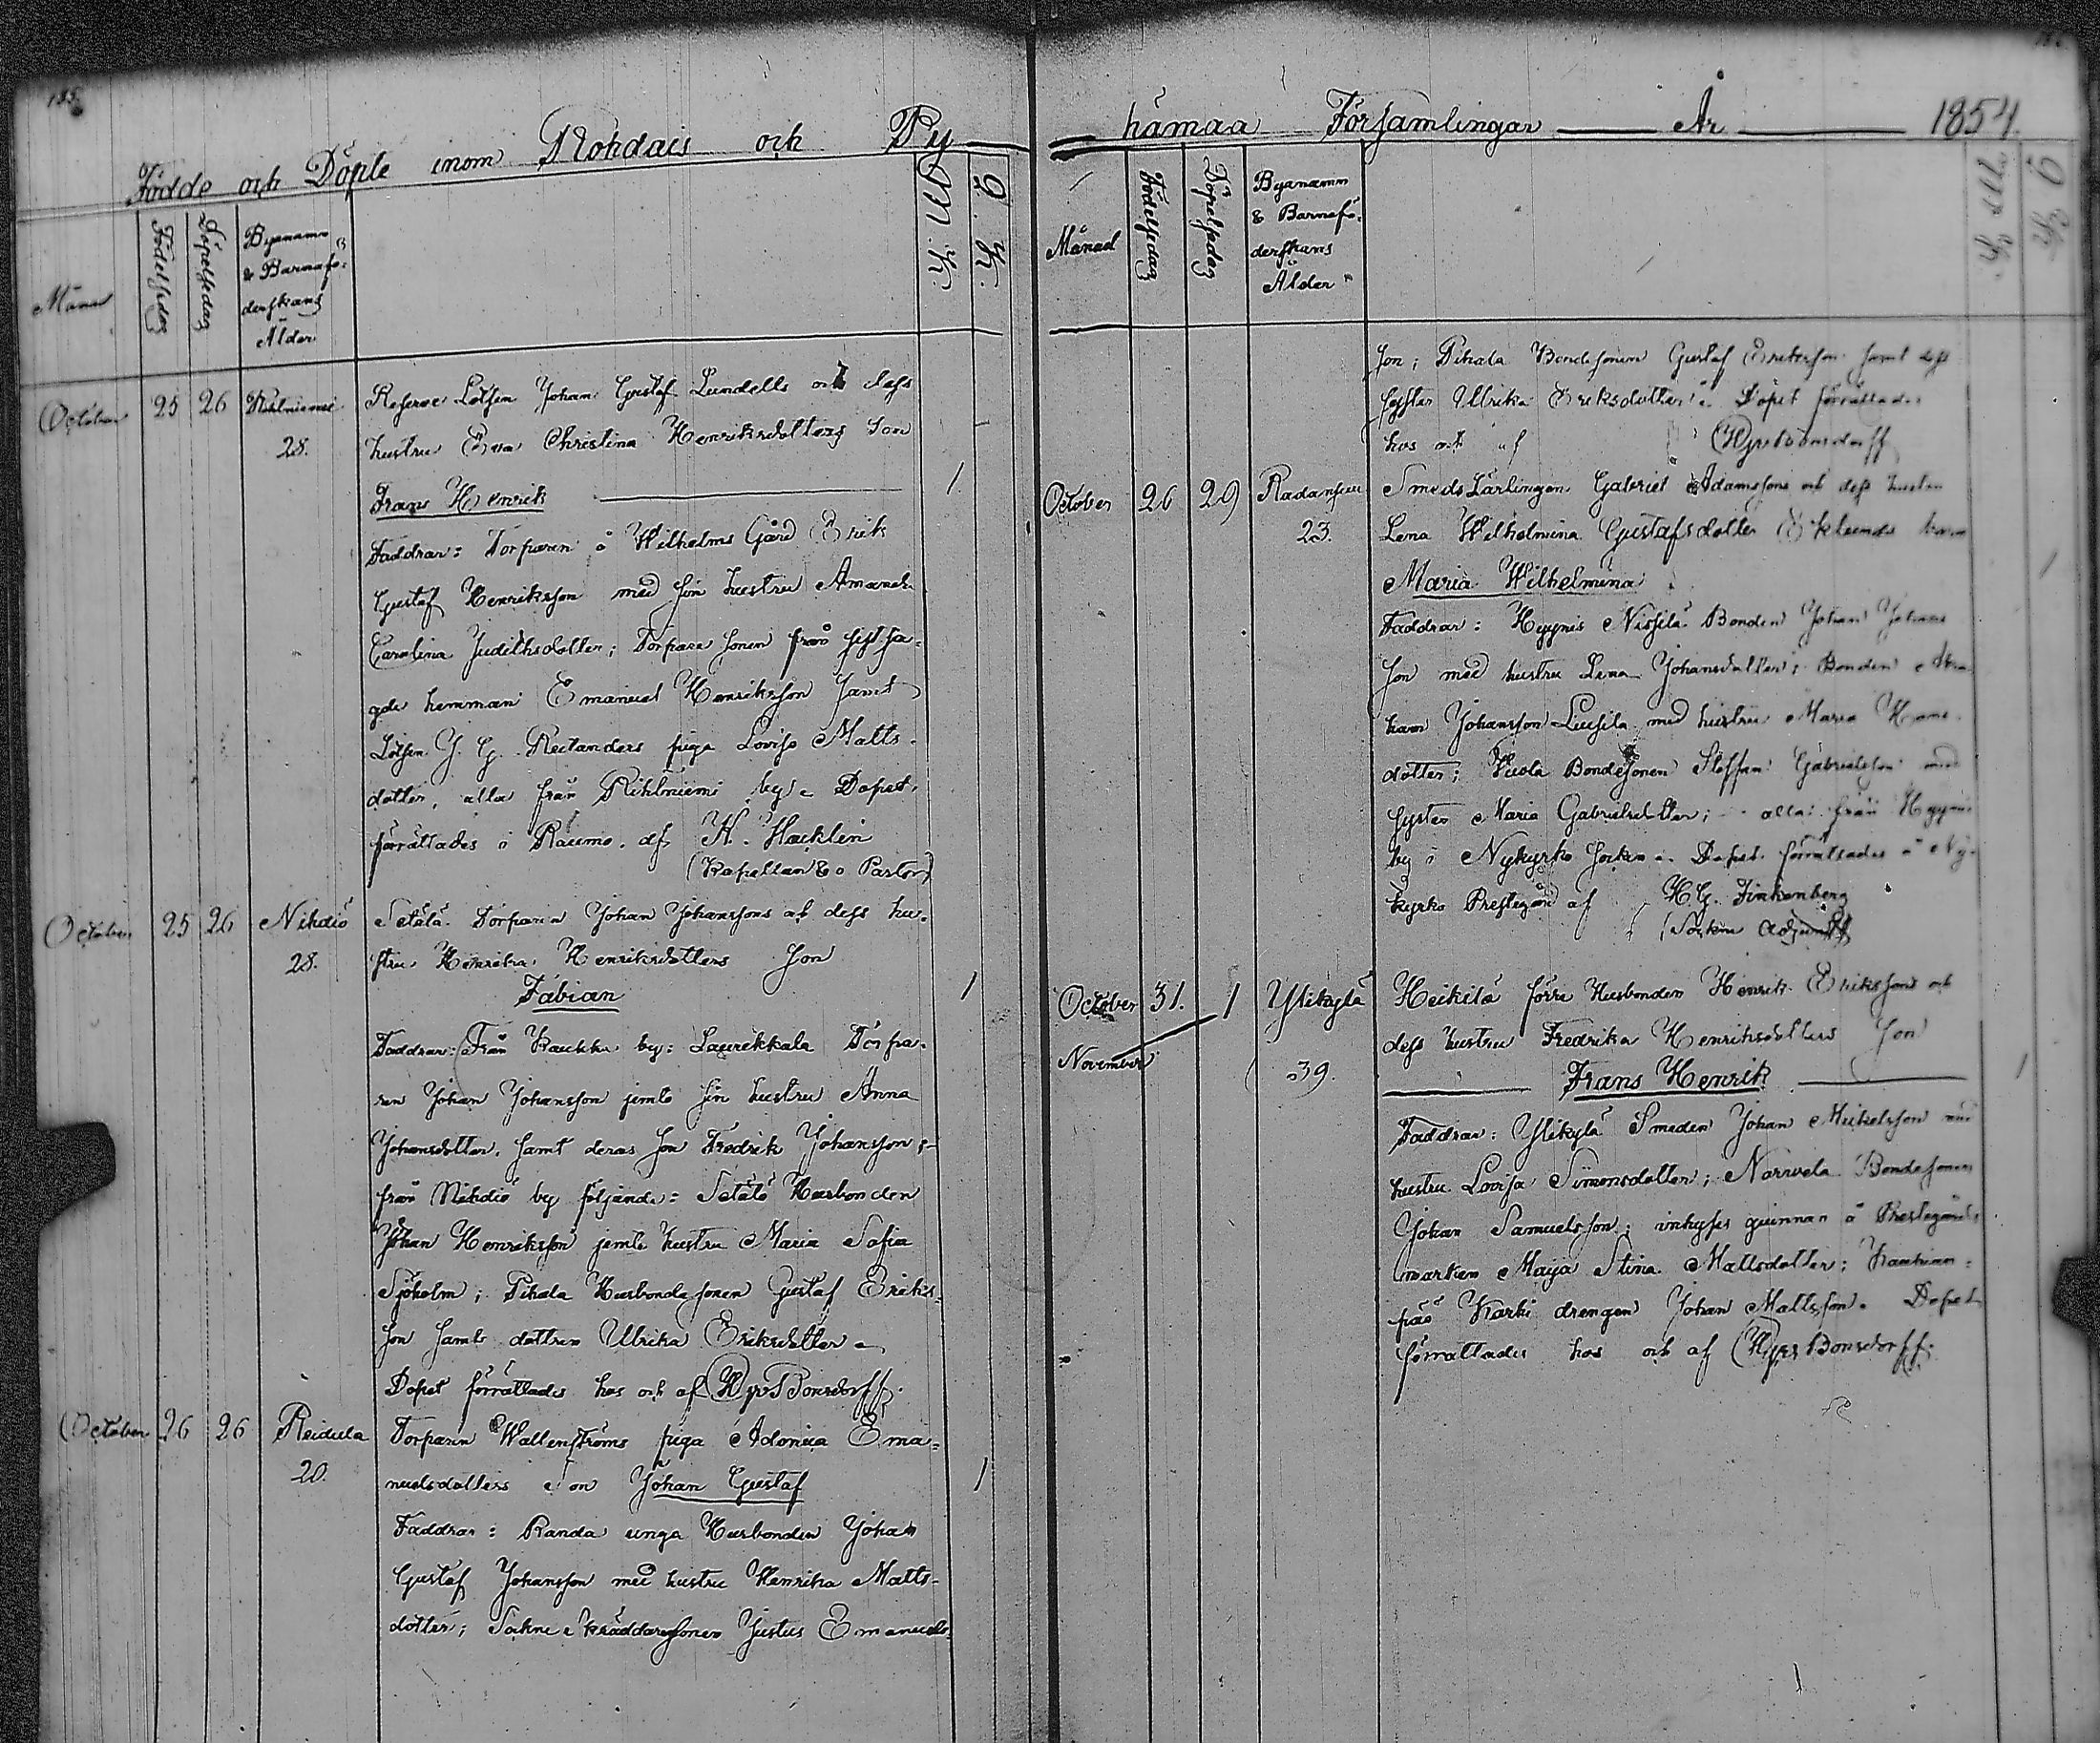 185
Födde och Döpte inom Rohdais och Py
Månad
Födelsedag
Döpelsedag
Byanamn
& Barnafö:
derskans
Ålder
M. K.
Q. K.
October 25 26 Rihlniemi Reserve Lotsen Johan Gustaf Lundells och dess
28. hustru Eva Christina Henriksdotters Son
Frans Henrik 1.
Faddrar: Torparen å Wilhelms Gård Erik
Gustaf Henriksson med sin hustru Amanda
Carolina Judithsdotter; Torpare sonen från sistsa-
gde hemman Emanuel Henriksson samt
Lotsen J. G. Reitanders piga Lovisa Matts-
dotter, alla från Rihlniemi by. Dopet
förrättades i Raumo af H. Hacklin
(Kapellan & o Pastor)
October 25 26 Nihdiö Setälä Torparen Johan Johanssons och dess hu-
28. stru Henrika Henriksdotters Son
Fabian 1
Faddrar: Från Kaukka by: Laurikkala Torpa-
ren Johan Johansson jemte sin hustru Anna
Johansdotter, samt deras son Fredrik Johansson;
från Nihdiö by följande: Setälä Husbonden
Johan Henriksson jemte hustru Maria Sofia
Sjöholm; Pihala Husbondesonen Gustaf Eriks-
son samt dottren Ulrika Eriksdotter
Dopet förrättades hos och af Hjr v Bonsdorff.
October 26 26 Reidula Torparen Wallenströms piga Adonia Ema-
20. nuelsdotters Son Johan Gustaf 1
Faddrar: Randa unga Husbonden Johan
Gustaf Johansson med hustru Henrika Matts-
dotter; Sokne skräddaresonen Justus Emanuels-
hämaa Församlingar År 1854.
Månad
Födelsedag
Döpelsedag
Byanamn
& Barnafö:
derskans
Ålder
M. K.
Q. K.
son; Pihala Bondesonen Gustaf Eriksson samt dess
syster Ulrika Eriksdotter. Dopet förrättades
hos och af Hjr v Bonsdorff
October 26 29 Radansuu Smeds Lärlingen Gabriel Adamssons och dess hustru
23. Lena Wilhelmina Gustafsdotter Eklunds barn
Maria Wilhelmina 1
Faddrar: Hyynis Nissilä Bonden Johan Johans
son med hustru Lena Johansdotter; Bonden Abra
ham Johansson Luusila med hustru Maria Hans
dotter; Bondesonen Steffan Gabrielsson med
syster Maria Gabrielsdotter; alla från Hyynis
by i Nykyrko Socken. Dopet förrättades å Ny-
kyrko Prestegård af H. G. Finkenberg
(Socken Adjunkt)
October 31. 1 Ylikylä Heikilä förre Husbonden Henrik Erikssons och
November 39. dess hustru Fredrika Henriksdotters Son
Frans Henrik 1
Faddrar: Ylikylä Smeden Johan Mickelsson med
hustru Lovisa Simonsdotter; Narvela Bondesonen
Johan Samuelsson; inhyses quinnan å Prestegårds
marken Maija Stina Mattsdotter;
pää Karki drengen Johan Mattsson. Dopet
förrättades hos och af Hjr v Bonsdorff.